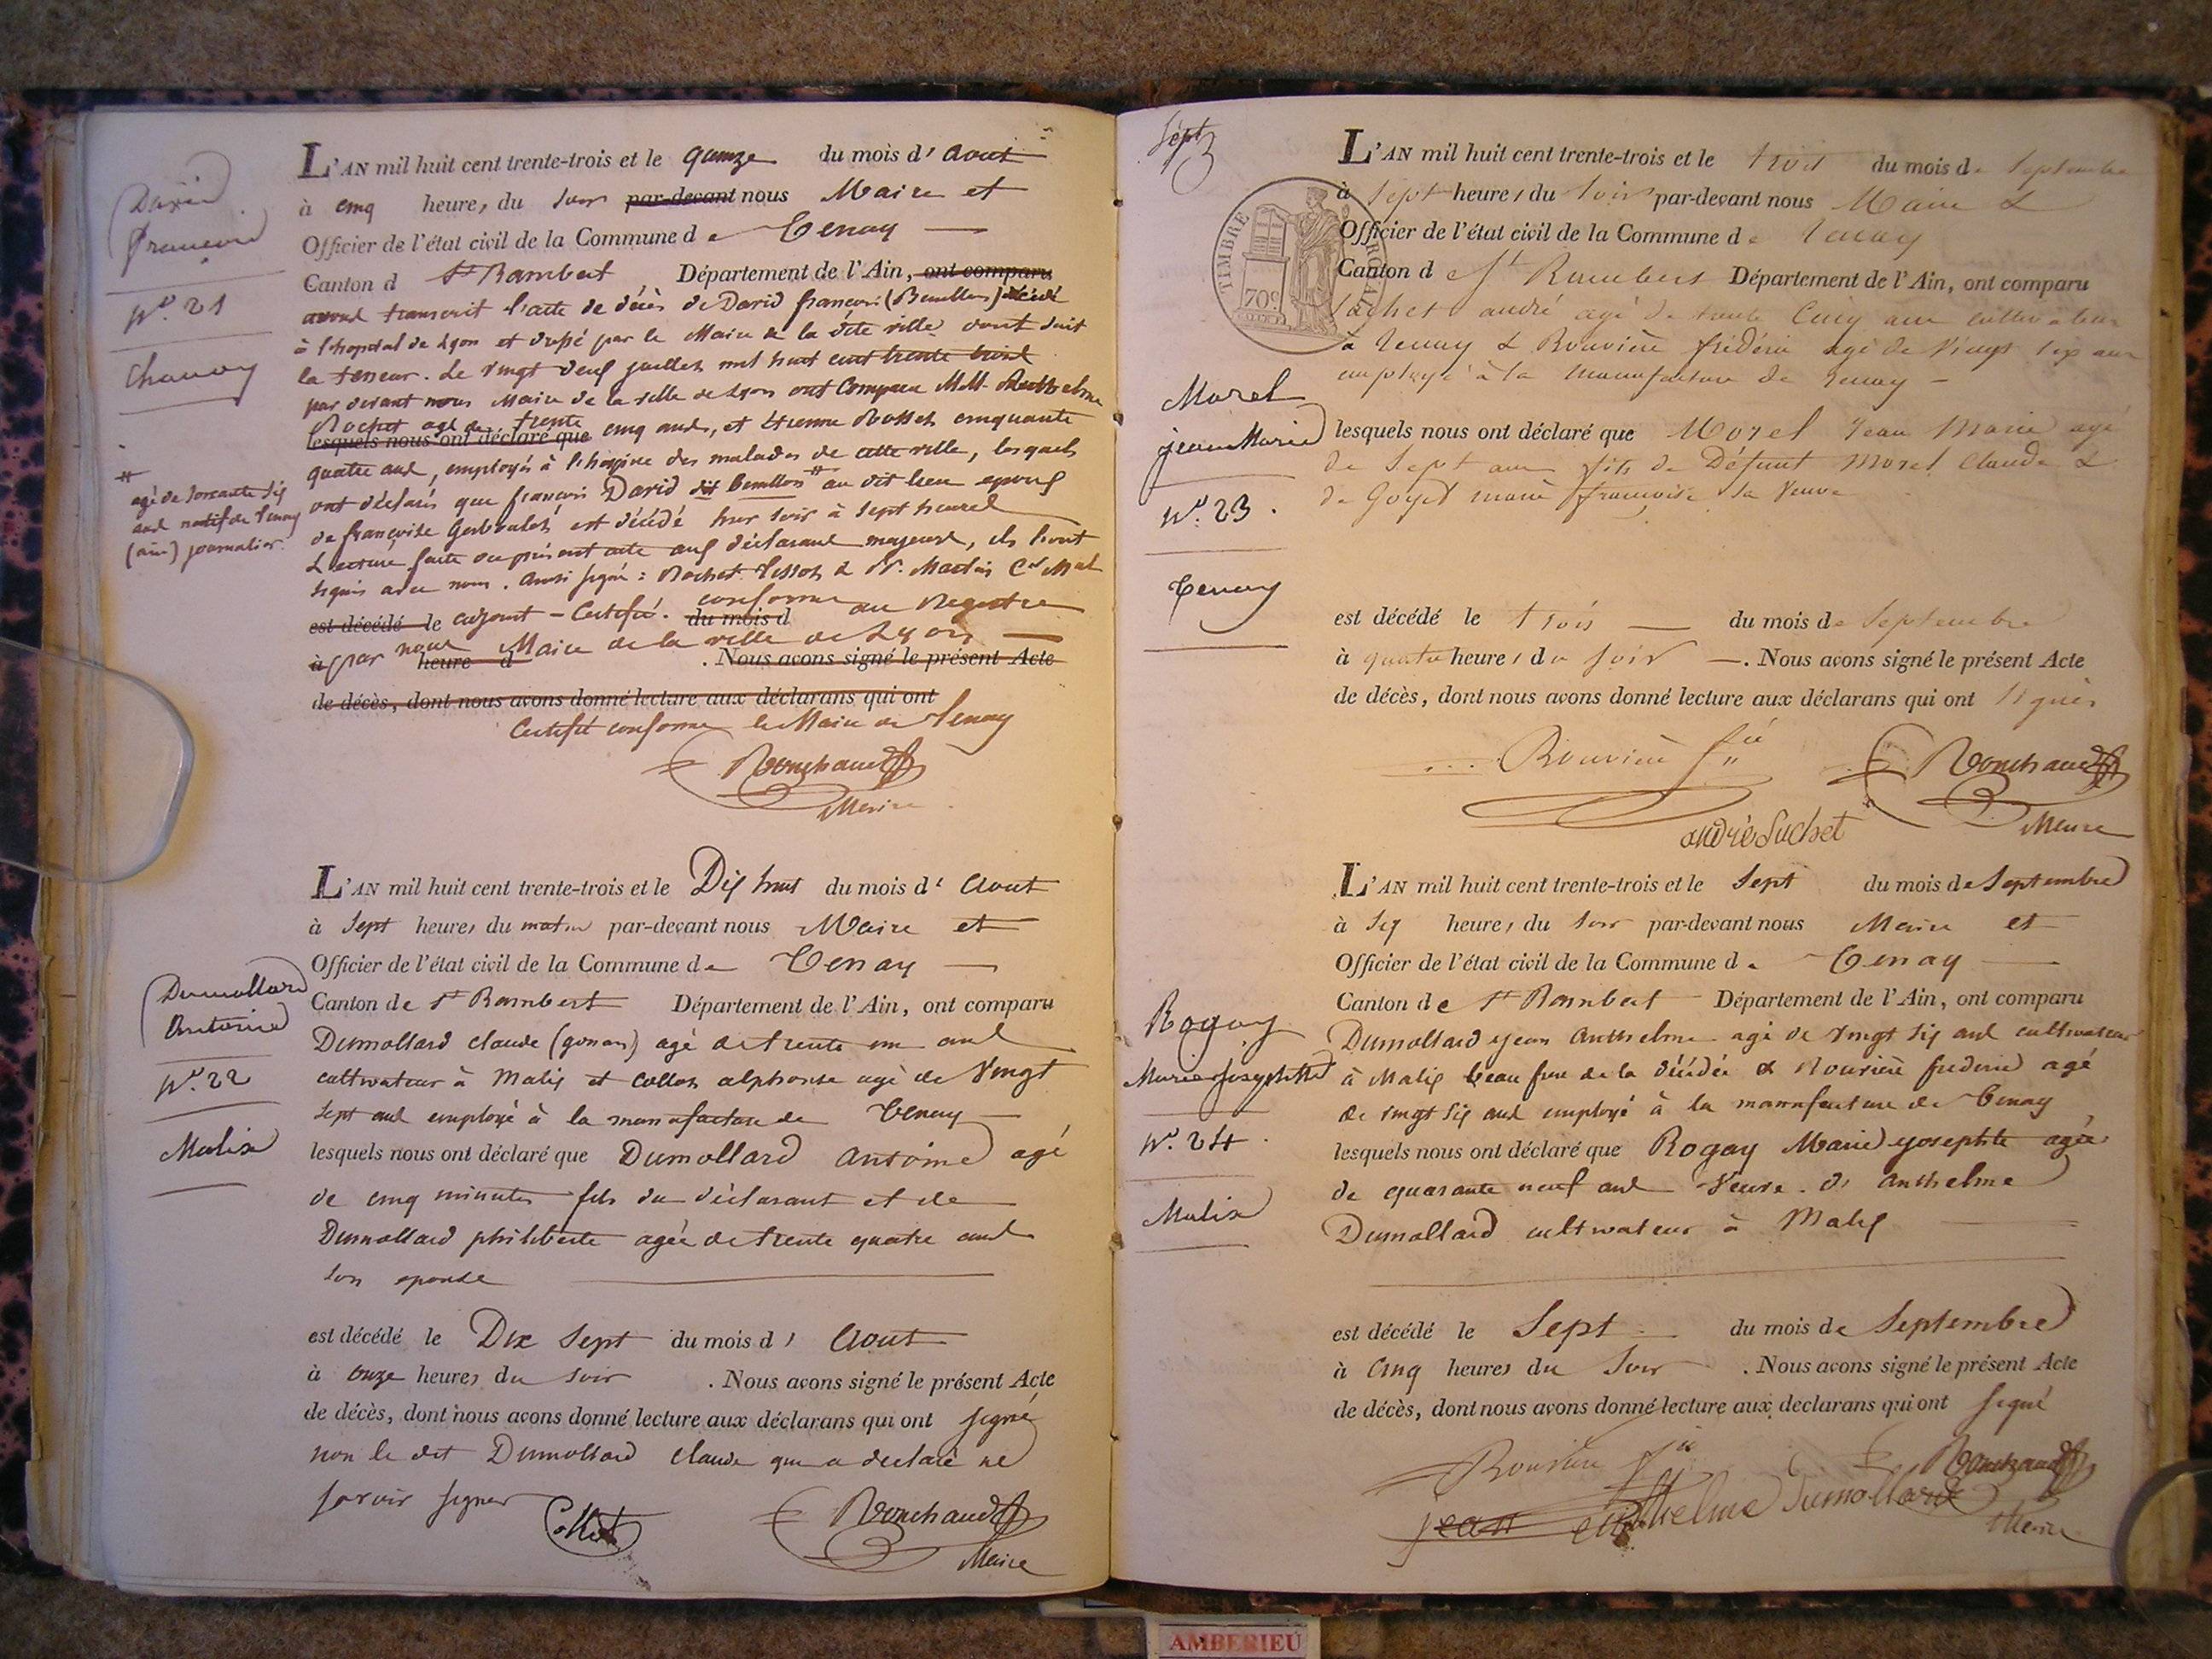 David
françois
N°. 21
Chanay
L'AN mil huit cent trente-trois et le quinze du mois d'Aout
à cinq heures du soir par-devant nous Maire et
Officier de l'état civil de la Commune de Tenay
Canton d St Rambert Département de l'Ain, ont comparu
avons transcrit l'acte de décès de David françois (Benillon) décédé
à l'hopital de Lyon et dressé par le Maire de la dite ville dont suit
la teneur. Le vingt deux juillet mil huit cent trente trois
par devant nous Maire de la ville de Lyon ont comparu MM.
Rochet agé de trente cinq ans, et Etienne Rosset cinquante
lesquels nous ont déclaré que
quatre ans, employés à l'hospice des malades de cette ville, lesquels
ont déclarés que françois David dit Benillon # au dit lieu epoux
# agé de soixante six
ans natif de Tenay
(ain) journalier.
de françoise est décédé hier soir à sept heures
Lecture faite du présent acte aux déclarans majeurs, ils l'ont
signés avec nous. Ainsi signé : Rochet & Martin
est décédé le adjoint - Certifié conforme du mois d au Registre
à par nous heure d Maire de la ville de Lyon . Nous avons signé le présent Acte
de décès, dont nous avons donné lecture aux déclarans qui ont
Certifié conforme le Maire de Tenay
Ronchaud
Maire
Dumollard
Antoine
N°. 22
Malix
L'AN mil huit cent trente-trois et le Dix huit du mois d'Aout
à sept heures du matin par-devant nous Maire et
Officier de l'état civil de la Commune de Tenay
Canton de St Rambert Département de l'Ain, ont comparu
Dumollard claude (gonan) agé de trente un ans
cultivateur à Malix et Collot alphonse agé de Vingt
sept ans employé à la manufacture de Tenay
lesquels nous ont déclaré que Dumollard Antoine agé
de cinq minutes fils du déclarant et de
Dumollard philiberte agée de trente quatre ans
son epouse
est décédé le Dix Sept du mois d' Aout
à onze heures du soir . Nous avons signé le présent Acte
de décès, dont nous avons donné lecture aux déclarans qui ont signé
non le dit Dumollard claude qui a declaré ne
savoir signer
Collot
Ronchaud
Maire
Sept
TIMBRE ROYAL
70c
L'AN mil huit cent trente-trois et le trois du mois de Septembre
à sept heures du soir par-devant nous Maire &
Officier de l'état civil de la Commune de Tenay
Canton d St Rambert Département de l'Ain, ont comparu
Suchet andré agé de trente Cinq ans cultivateur
à Tenay & Rouvière frédéric agé de Vingt six ans
employé à la manufacture de Tenay -
Morel
jean Marie
N°. 23.
Tenay
lesquels nous ont déclaré que Morel Jean Marie agé
de Sept ans fils de Défunt Morel Claude &
de Goyet marie françoise sa Veuve
est décédé le trois du mois de Septembre
à quatre heures du soir . Nous avons signé le présent Acte
de décès, dont nous avons donné lecture aux déclarans qui ont signés
Rouvière fic
Ronchaud
Maire
andré Suchet
Rogay
Marie Josephtte
N°. 24.
Malix
L'AN mil huit cent trente-trois et le sept du mois de Septembre
à six heures du soir par-devant nous Maire et
Officier de l'état civil de la Commune de Tenay
Canton de St Rambert Département de l'Ain, ont comparu
Dumollard jean Anthelme agé de vingt six ans cultivateur
à Malix beau frere de la décédée & Rouvière frederic agé
de vingt six ans employé à la manufacture de Tenay
lesquels nous ont déclaré que Rogay Marie yosephte agée
de quarante neuf ans Veuve d' Anthelme
Dumollard cultivateur à Malix
est décédé le Sept du mois de Septembre
à Cinq heures du Soir . Nous avons signé le présent Acte
de décès, dont nous avons donné lecture aux declarans qui ont signé
Rouvière fic
Ronchaud
jean anthelme Dumollard
Maire
AMBERIEU